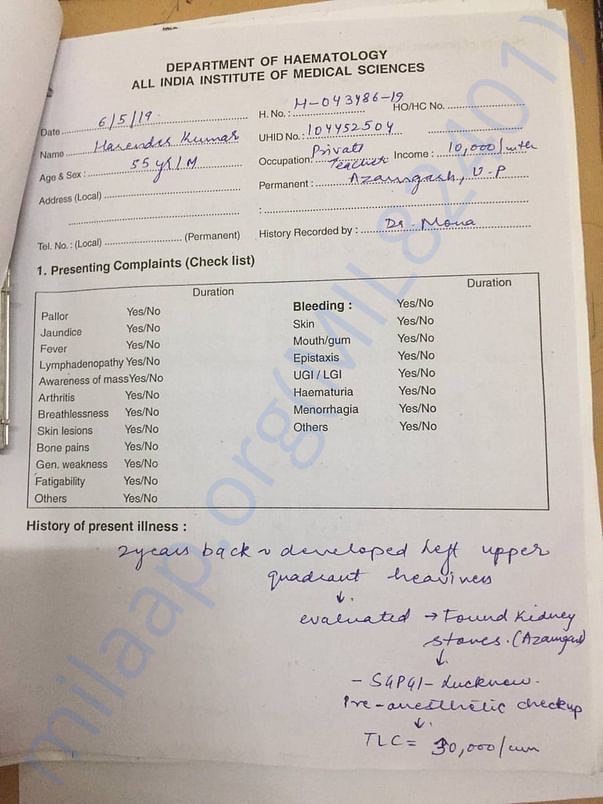 DEPARTMENT OF HAEMATOLOGY
ALL INDIA INSTITUTE OF MEDICAL SCIENCES
Date 6/5/19 H. No.: H-043486-19 HO/HC No.
Name Harender Kumar UHID No.: 104452504
Age & Sex: 55 yr/M Occupation: Private Teacher Income: 10,000/mth
Address (Local) Permanent: Azamgarh, U.P
Tel. No.: (Local) (Permanent) History Recorded by: Dr. Mona
1. Presenting Complaints (Check list)
Duration Duration
Pallor Yes/No Bleeding : Yes/No
Jaundice Yes/No Skin Yes/No
Fever Yes/No Mouth/gum Yes/No
Lymphadenopathy Yes/No Epistaxis Yes/No
Awareness of mass Yes/No UGI / LGI Yes/No
Arthritis Yes/No Haematuria Yes/No
Breathlessness Yes/No Menorrhagia Yes/No
Skin lesions Yes/No Others Yes/No
Bone pains Yes/No
Gen. weakness Yes/No
Fatigability Yes/No
Others Yes/No
History of present illness :
2years back ~ developed left upper
quadrant heaviness
↓
evaluated → Found Kidney
stones. (Azamgarh)
↓
- SGPGI - Lucknow.
Pre-anesthetic checkup
↓
TLC = 30,000/cum
milaap.org(MIL82401)